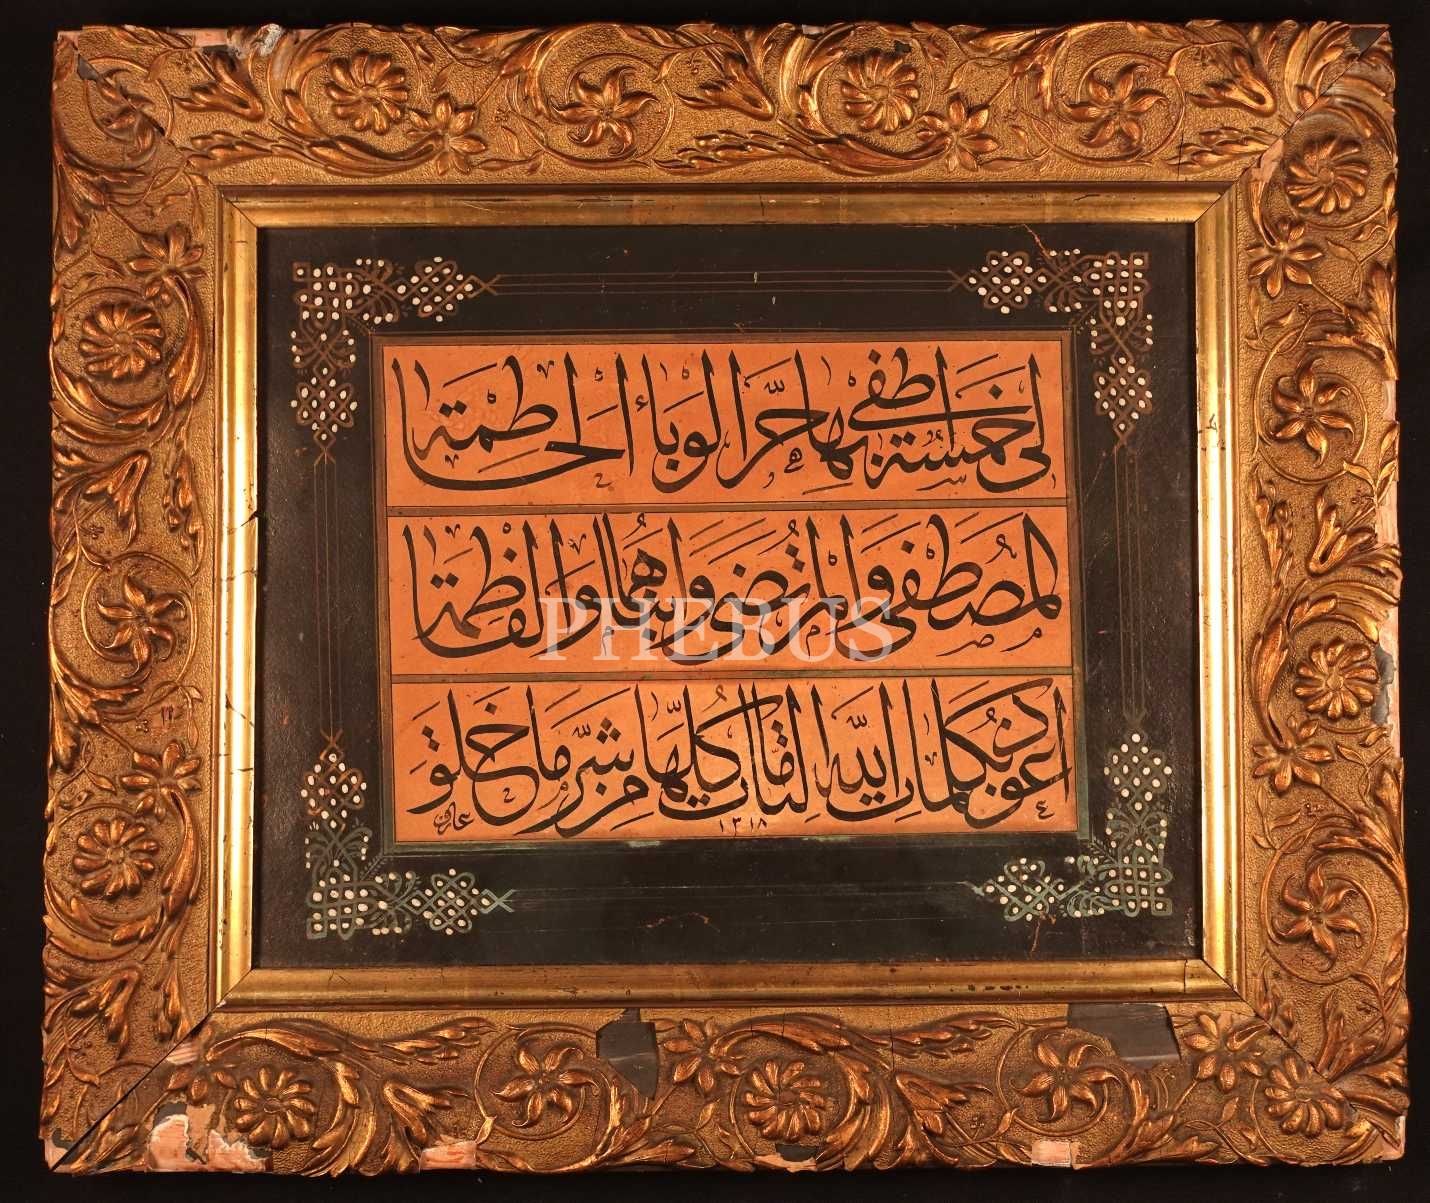 لى خمسة اطفى بها حر الوباء الحاطمة
المصطفى والمرتضى وابناهما والفاطمة
اعوذ بكلمات الله التامات كلها من شر ما خلق
عارف
١٣١٨
PHEBUS